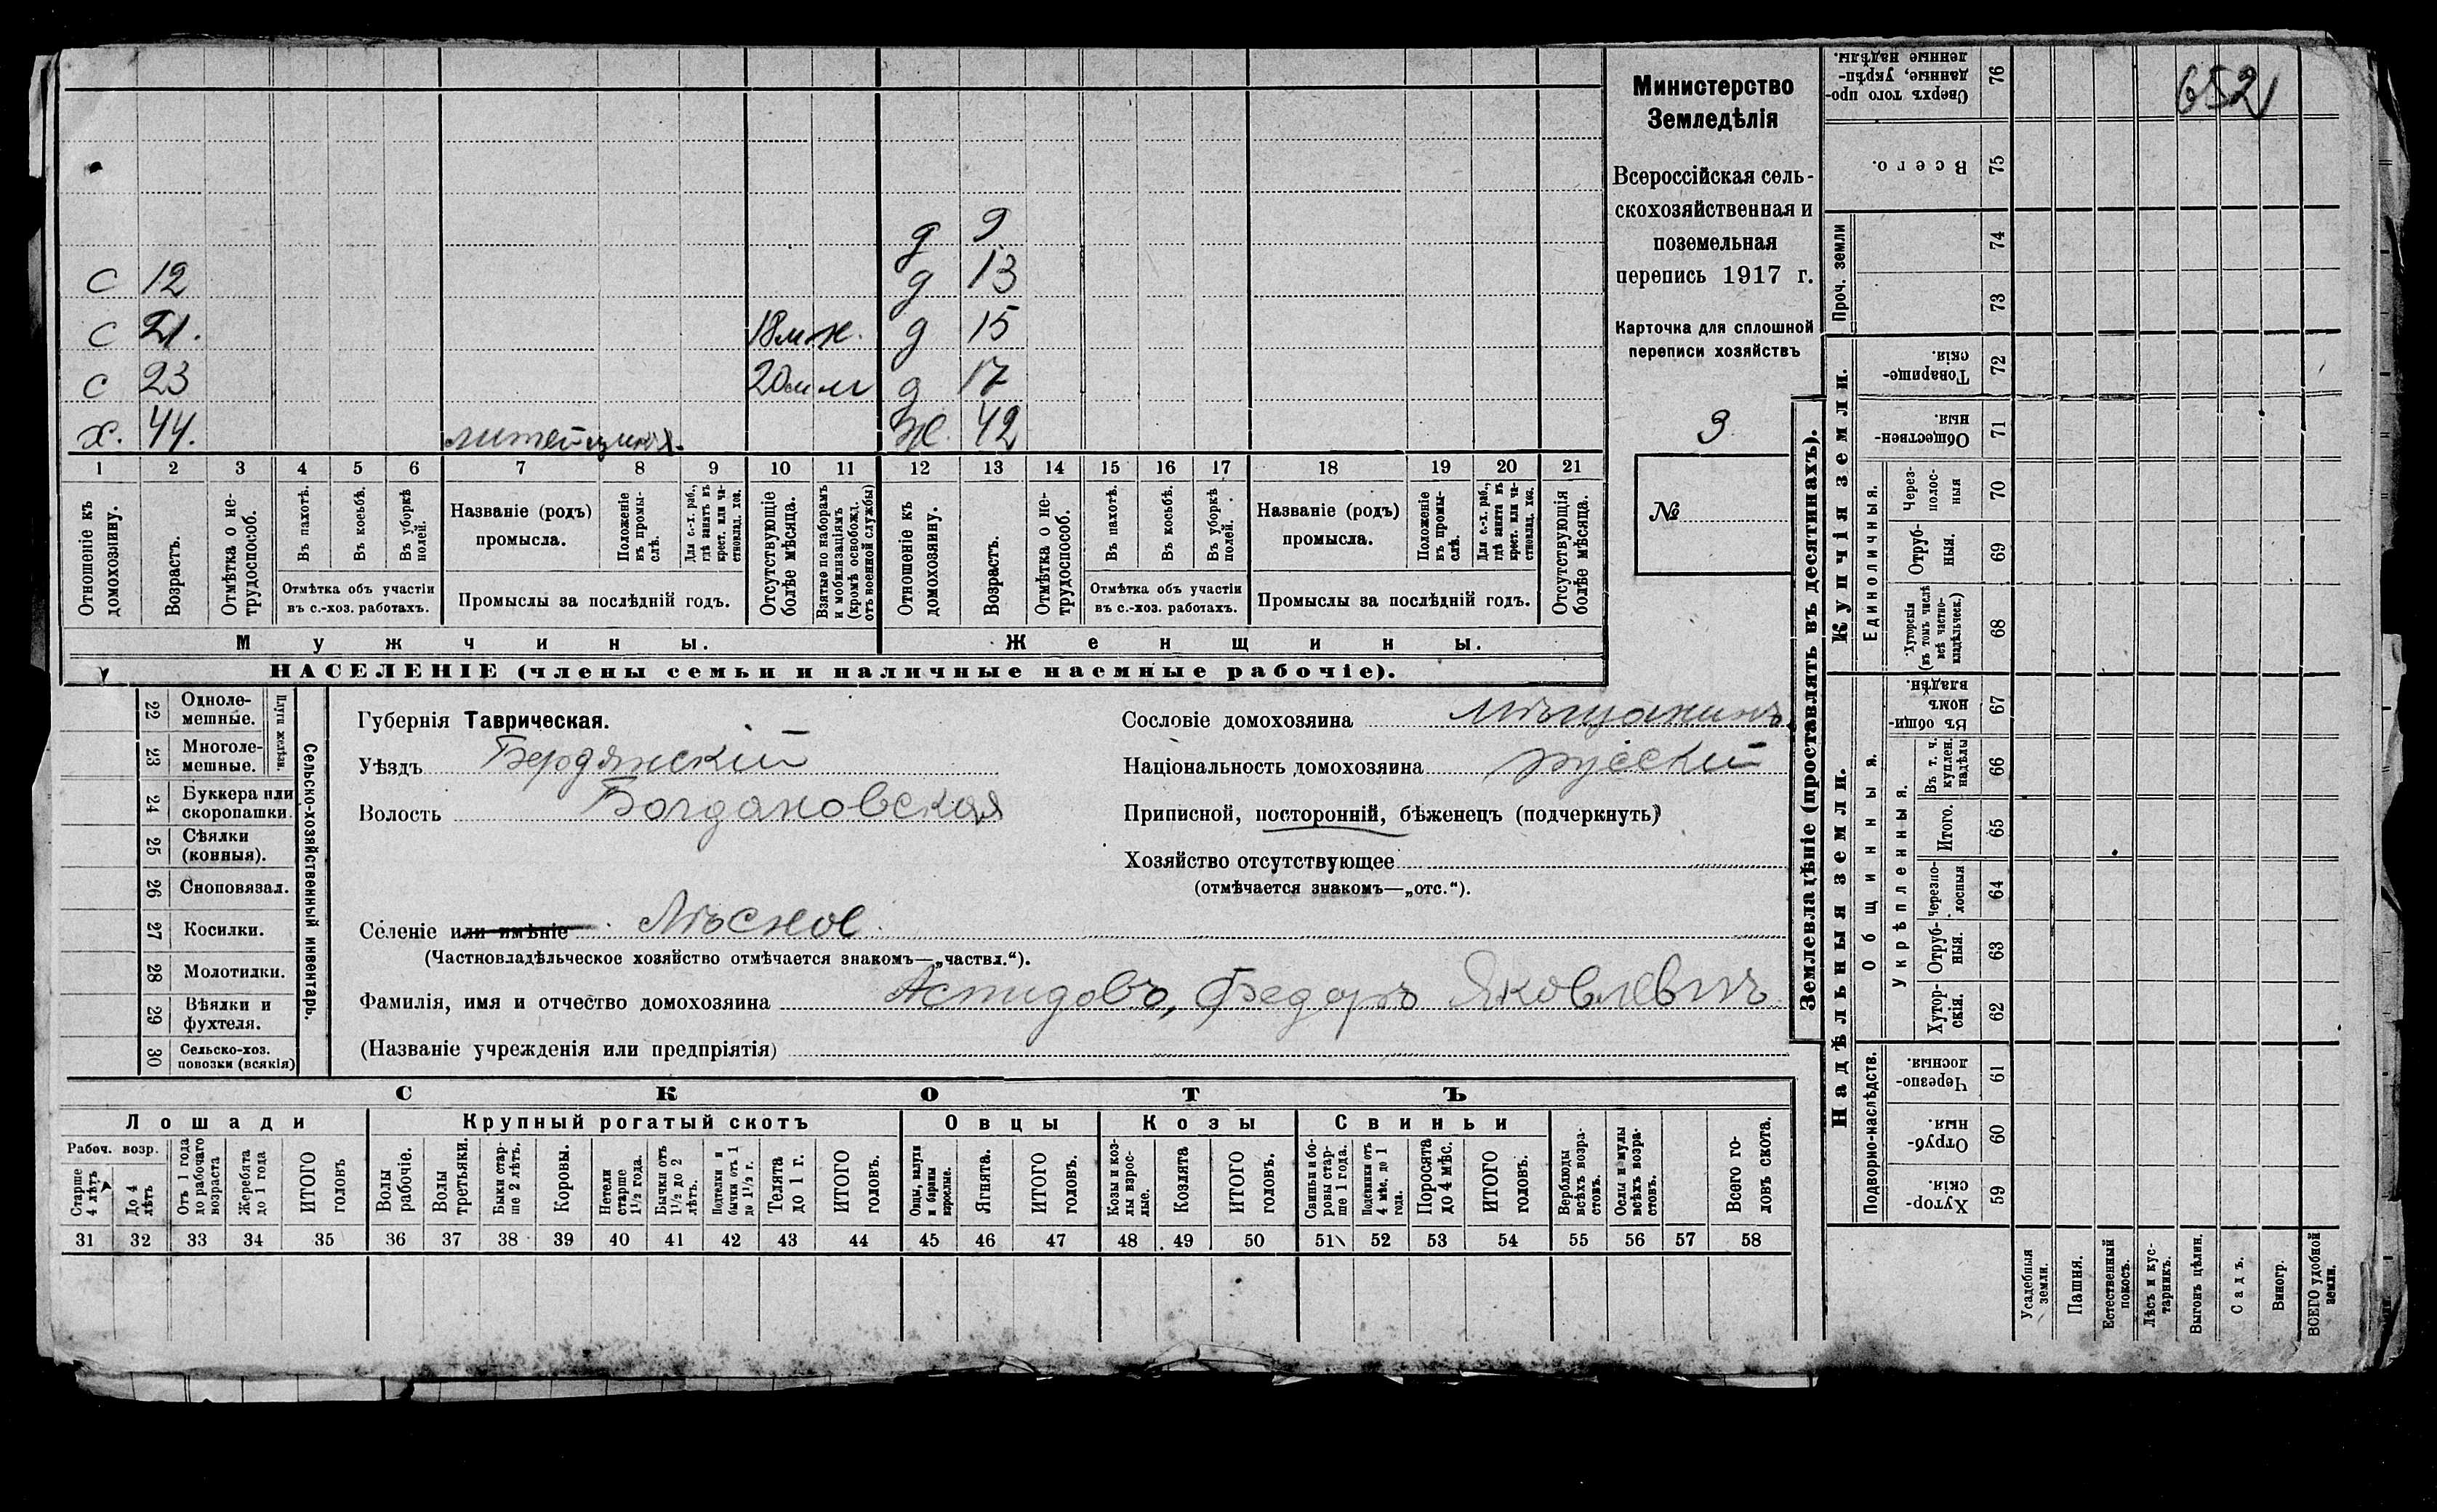 652
Министерство
Земледѣлія
Всероссійская сель-
скохозяйственная и
поземельная
перепись 1917 г.
Карточка для сплошной
переписи хозяйствъ
9
№
д 9
с 12 д 13
с 21. 18 м д 15
с 23 20 м д 17
х. 44. Ж. 42
1 2 3 4 5 6 7 8 9 10 11 12 13 14 15 16 17 18 19 20 21
Отношеніе къ домохозяину.
Возрастъ.
Отмѣтка о не-трудоспособ.
Въ пахотѣ.
Въ косьбѣ.
Въ уборкѣ полей.
Отмѣтка объ участіи
въ с.-хоз. работахъ.
Названіе (родъ)
промысла.
Положеніе въ промы-слѣ.
Для с.-х. раб., гдѣ занятъ въ крест. или ча-стновлад. хоз.
Промыслы за послѣдній годъ.
Отсутствующіе болѣе мѣсяца.
Взятые по наборамъ и мобилизаціямъ (кромѣ освобожд. отъ военной службы)
Отношеніе къ домохозяину.
Возрастъ.
Отмѣтка о не-трудоспособ.
Въ пахотѣ.
Въ косьбѣ.
Въ уборкѣ полей.
Отмѣтка объ участіи
въ с.-хоз. работахъ.
Названіе (родъ)
промысла.
Положеніе въ промы-слѣ.
Для с.-х. раб., гдѣ занята въ крест. или ча-стновлад. хоз.
Промыслы за послѣдній годъ.
Отсутствующія болѣе мѣсяца.
Мужчины.
Женщины.
НАСЕЛЕНІЕ (члены семьи и наличные наемные рабочіе).
22 Одноле-мешные.
23 Многоле-мешные.
Плуги желѣзн.
24 Буккера или скоропашки.
25 Сѣялки (конныя).
26 Сноповязал.
27 Косилки.
28 Молотилки.
29 Вѣялки и фухтеля.
30 Сельско-хоз. повозки (всякія)
Сельско-хозяйственный инвентарь.
Губернія Таврическая.
Уѣздъ Бердянскій
Волость Богдановская
Селеніе или имѣніе Лѣсное
(Частновладѣльческое хозяйство отмѣчается знакомъ—„частвл.“).
Фамилія, имя и отчество домохозяина Аспидовъ, Федоръ Яковлевичъ
(Названіе учрежденія или предпріятія)
Сословіе домохозяина мѣщанинъ
Національность домохозяина русскій
Приписной, посторонній, бѣженецъ (подчеркнуть)
Хозяйство отсутствующее
(отмѣчается знакомъ—„отс.“).
СКОТЪ
Лошади Крупный рогатый скотъ Овцы Козы Свиньи
Рабоч. возр.
Старше 4 лѣтъ
До 4 лѣтъ
Отъ 1 года до рабочаго возраста
Жеребята до 1 года
ИТОГО головъ
Волы рабочіе.
Волы третьяки.
Быки стар-ше 2 лѣтъ.
Коровы.
Нетели старше 1½ года.
Бычки отъ 1½ до 2 лѣтъ.
Подтелки и бычки отъ 1 до 1½ г.
Телята до 1 г.
ИТОГО головъ.
Овцы, валухи и бараны взрослые.
Ягнята.
ИТОГО головъ.
Козы и коз-лы взрос-лые.
Козлята
ИТОГО головъ.
Свиньи и бо-ровы стар-ше 1 года.
Подсвинки отъ 4 мѣс. до 1 года.
Поросята до 4 мѣс.
ИТОГО головъ.
Верблюды всѣхъ возра-стовъ.
Ослы и мулы всѣхъ возра-стовъ.
Всего го-ловъ скота.
31 32 33 34 35 36 37 38 39 40 41 42 43 44 45 46 47 48 49 50 51 52 53 54 55 56 57 58
Землевладѣніе (проставлять въ десятинахъ).
Сверхъ того про-данные, укрѣп-ленные надѣлы. 76
Всего. 75
Проч. земли 74
73
Купчія земли.
Товарище-скія. 72
Обществен-ныя. 71
Единоличныя.
Через-полос-ныя 70
Отруб-ныя. 69
Хуторскія (въ томъ числѣ всѣ частно-владѣльческ.) 68
Надѣльныя земли.
Общинныя.
Въ общи-номъ владѣн. 67
Укрѣпленныя.
Въ т. ч. куплен. надѣлы 66
Итого. 65
Черезпо-лосныя 64
Отруб-ныя. 63
Хутор-скія. 62
Подворно-наслѣдств.
Черезпо-лосныя 61
Отруб-ныя. 60
Хутор-скія. 59
Усадебныя земли.
Пашня.
Естественный покосъ.
Лѣсъ и кус-тарникъ.
Выгонъ цѣлин.
Садъ.
Виногр.
ВСЕГО удобной земли.